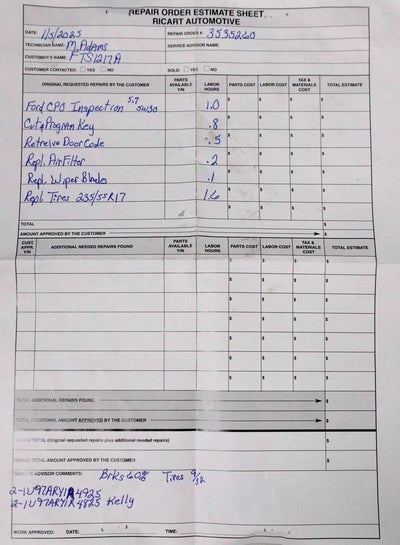 REPAIR ORDER ESTIMATE SHEET
RICART AUTOMOTIVE
DATE: 1/5/2025 REPAIR ORDER #: 3535260
TECHNICIAN NAME: M. Adams SERVICE ADVISOR NAME:
CUSTOMER'S NAME: FTS1217A
CUSTOMER CONTACTED: YES NO SOLD: YES NO
ORIGINAL REQUESTED REPAIRS BY THE CUSTOMER PARTS AVAILABLE Y/N LABOR HOURS PARTS COST LABOR COST TAX & MATERIALS COST TOTAL ESTIMATE
Ford CPO Inspection 5.7 5W30 1.0
Cut & Program Key .8
Retreive Door Code .5
Repl. Air Filter .2
Repl. Wiper Blades .1
Repl. Tires 235/55R17 1.6
TOTAL
AMOUNT APPROVED BY THE CUSTOMER
CUST. APPR. Y/N ADDITIONAL NEEDED REPAIRS FOUND PARTS AVAILABLE Y/N LABOR HOURS PARTS COST LABOR COST TAX & MATERIALS COST TOTAL ESTIMATE
TOTAL ADDITIONAL REPAIRS FOUND
TOTAL ADDITIONAL AMOUNT APPROVED BY THE CUSTOMER
GRAND TOTAL (Original requested repairs plus additional needed repairs)
GRAND TOTAL AMOUNT APPROVED BY THE CUSTOMER
SERVICE ADVISOR COMMENTS: Brks 60% Tires 9/32
2-1U97ARY1R4925
2-1U97ARY1R4825 Kelly
WORK APPROVED: DATE: TIME: